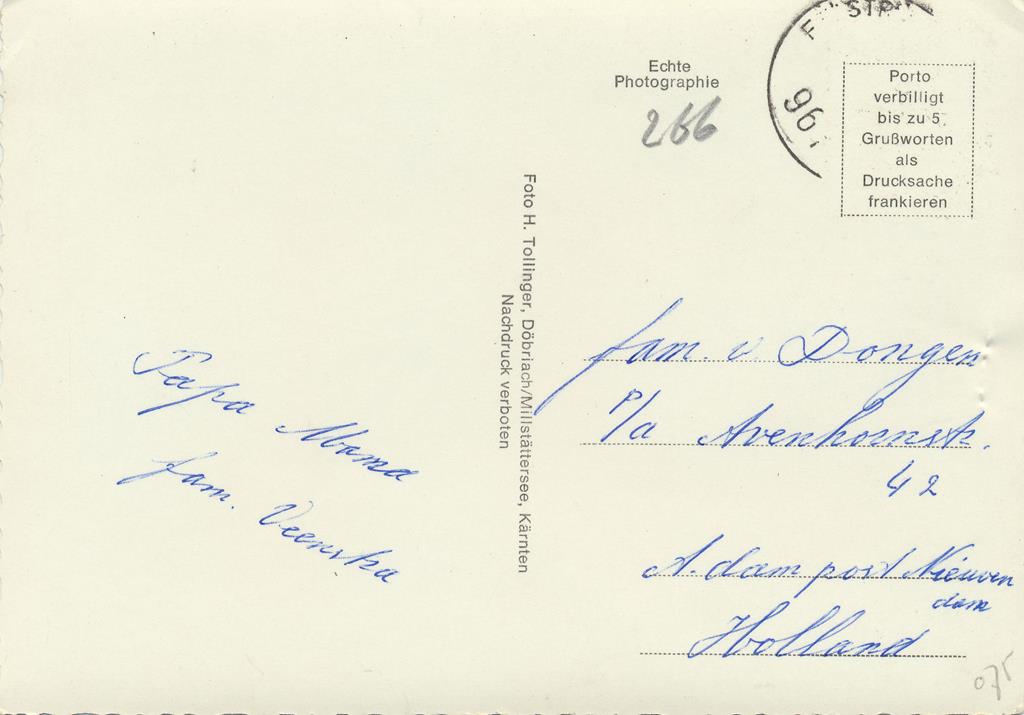 Echte
Photographie
266
Porto
verbilligt
bis zu 5
Grußworten
als
Drucksache
frankieren
Foto H. Tollinger, Döbriach/Millstättersee, Kärnten
Nachdruck verboten
Papa Mama
fam. Veenstra
fam. v. Dongen
p/a Avenhornstr.
42
A.dam post Nieuwen
dam
Holland
075